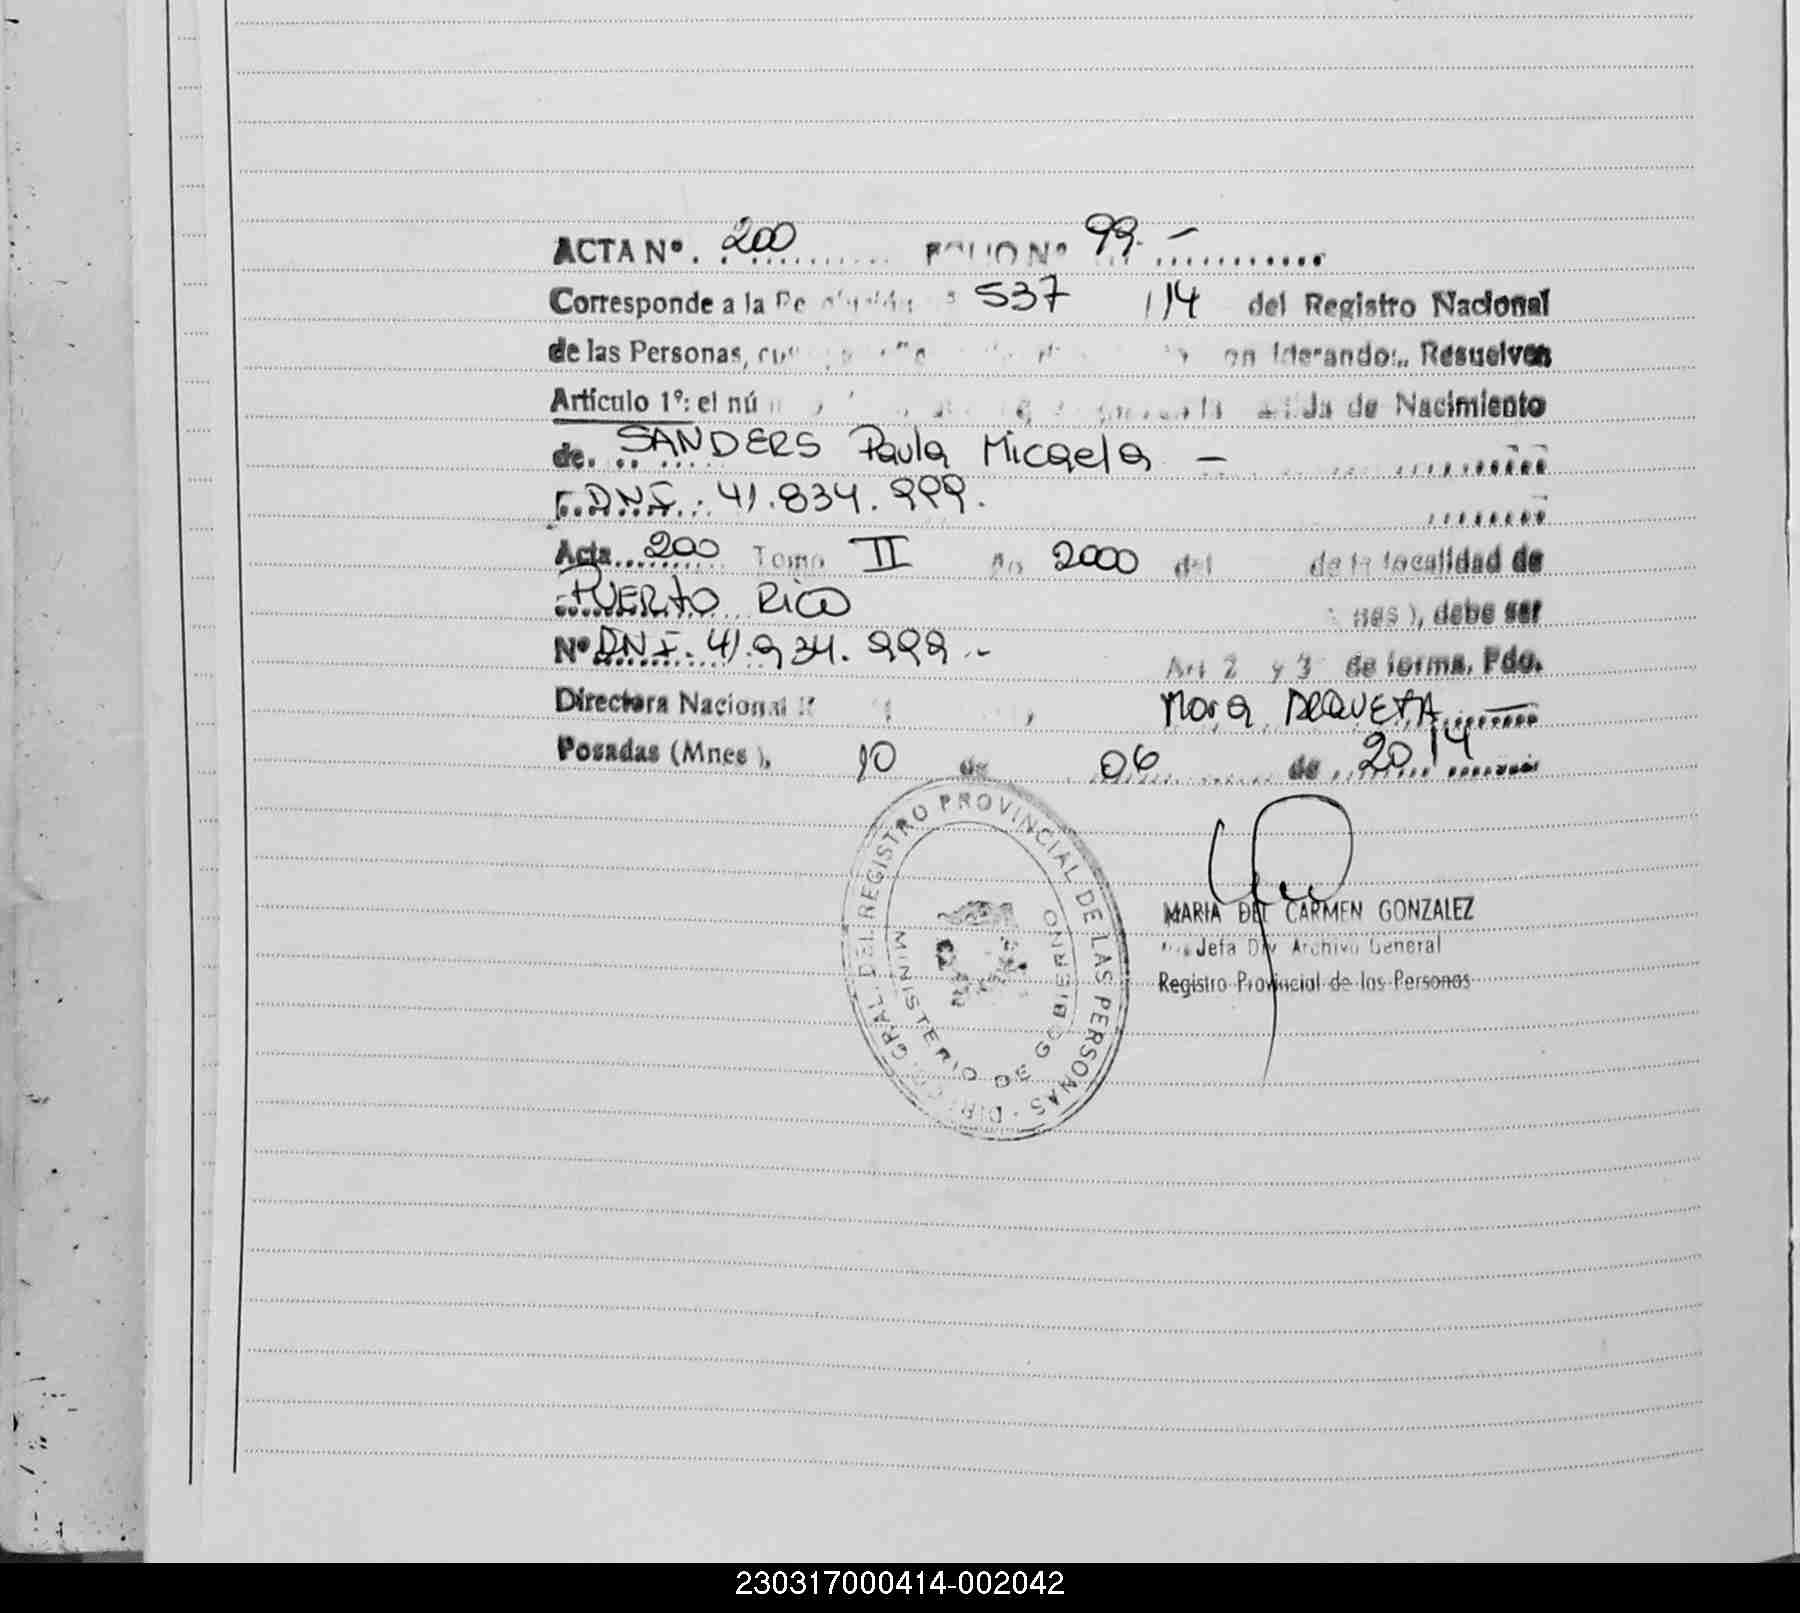 ACTA Nº. 200 FOLIO Nº 99.-
Corresponde a la 537 /14 del Registro Nacional
de las Personas, Resuelven
Artículo 1º: el nú de Nacimiento
de. SANDERS Paula Micaela -
DNI: 41.834.999.
Acta 200 Tomo II 2000 del de la localidad de
PUERTO Rico nes), debe ser
Nº DNI. 41.934.999.-
Art 2 y 3 de forma. Fdo.
Directora Nacional Mora
Posadas (Mnes), 10 de 06 de 2014
DEL REGISTRO PROVINCIAL DE LAS PERSONAS
GRAL.
MINISTERIO DE GOBIERNO
MARIA DEL CARMEN GONZALEZ
Jefa Div Archivo General
Registro Provincial de las Personas
230317000414-002042